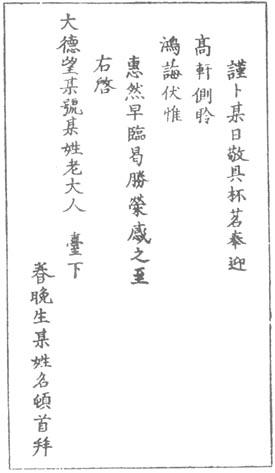 謹卜某日敬具杯茗奉迎
高軒側聆
鴻誨伏惟
惠然早臨曷勝榮感之至
右啓
大德望某號某姓老大人 臺下
眷晚生某姓名頓首拜